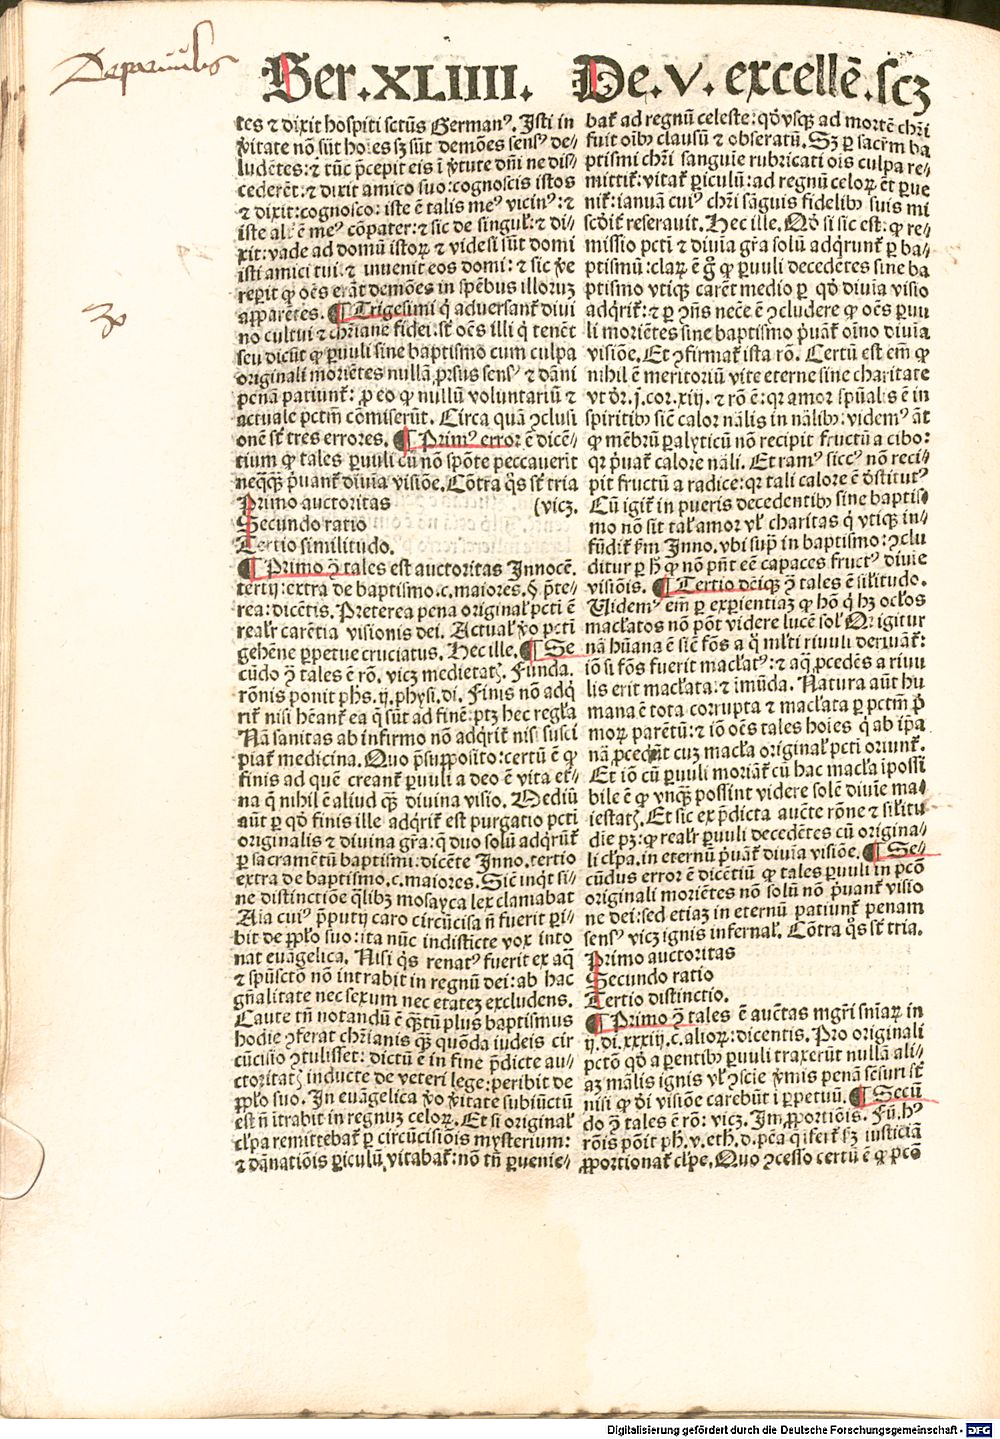 De paruulis
Ser. XLIIII. De. v. excellē. scʒ
tes ⁊ dixit hospiti sctūs Germanꝰ. Isti in
v̄itate nō sūt hoīes sʒ sūt demōes sensꝰ de⸗
ludētes: ⁊ tūc p̄cepit eis ī v̄tute dn̄i ne dis⸗
cederēt: ⁊ dixit amico suo: cognoscis istos
⁊ dixit: cognosco: iste ē talis meꝰ vicinꝰ: ⁊
iste alꝰ ē meꝰ cōpater: ⁊ sic de singul̕: ⁊ di⸗
xit: vade ad domū istoꝝ ⁊ vide si sūt domi
isti amici tui. ⁊ inuenit eos domi: ⁊ sic v̄e
reperit ꝙ oēs erāt demōes in spēbus illoruʒ
apparētes. ¶ Trigesimi q̇ aduersant᷑ diui
no cultui ⁊ chr̄iane fidei. st̄ oēs illi q̇ tenēt
seu dicūt ꝙ ꝑuuli sine baptismo cum culpa
originali moriētes nullā ꝓrsus sensꝰ ⁊ dāni
penā patiunt᷑: ꝓ eo ꝙ nullū voluntariū ⁊
actuale pctm̄ cōmiserūt. Circa quā ↄclusi
onē st̄ tres errores. ¶ Primꝰ error ē dicē⸗
tium ꝙ tales ꝑuuli cū nō spōte peccauerīt
neq̄q̄ꝫ p̄uant᷑ diuīa visiōe. Cōtra q̄s st̄ tria
Primo auctoritas (vicʒ.
Secundo ratio
Tertio similitudo.
¶ Primo ↄ̄ tales est auctoritas Innocē.
tertij: extra de baptismo. c. maiores. §. p̄te⸗
rea: dicētis. Preterea pena original̕ pcti ē
real̕r carētia visionis dei. Actual̕ v̄o pcti
gehēne ꝑpetue cruciatus. Hec ille. ¶ Se
cūdo ↄ̄ tales ē rō. vicʒ medietatꝭ. Funda.
rōnis ponit phs. ij. physi. di. Finis nō adq̇
rit᷑ nisi hēant᷑ ea q̄ sūt ad finē: ptʒ hec regl̕a
Nā sanitas ab infirmo nō adq̇rit᷑ nisi susci
piat᷑ medicina. Quo p̄supposito: certū ē ꝙ
finis ad quē creant᷑ ꝑuuli a deo ē vita et̄⸗
na q̄ nihil ē aliud q̄ꝫ diuina visio. Mediū
aūt ꝑ qd̕ finis ille adq̇rit᷑ est purgatio pcti
originalis ⁊ diuina gr̄a: q̄ duo solū adq̇rūt᷑
ꝑ sacramētū baptismi: dicēte Inno. tertio
extra de baptismo. c. maiores. Sic̄ inq̇t si⸗
ne distinctiōe q̄libꝫ mosayca lex clamabat
Aīa cuiꝰ p̄putij caro circūcisa nō fuerit ꝑi⸗
bit de ppl̕o suo: ita nūc indisticte vox into
nat euāgelica. Nisi q̇s renatꝰ fuerit ex aq̄
⁊ spūsctō nō intrabit in regnū dei: ab hac
gn̄alitate nec sexum nec etateʒ excludens.
Caute tn̄ notandū ē q̄ꝫtū plus baptismus
hodie ↄferat chr̄ianis q̄ꝫ quōda iudeis cir
cūcisio ↄtulisset: dictū ē in fine p̄dicte au⸗
ctoritatꝭ inducte de veteri lege: peribit de
ppl̕o suo. In euāgelica v̄o v̄itate subiūctū
est n̄ ītrabit in regnuʒ celoꝝ. Et si original̕
cl̕pa remittebat᷑ ꝑ circūcisiōis mysterium:
⁊ dānatiōis ꝑiculū vitabat᷑: nō tn̄ ꝑuenie⸗
bat᷑ ad regnū celeste: qd̕ vsqꝫ ad mortē chr̄i
fuit oībꝰ clausū ⁊ obseratū. Sʒ ꝑ sacr̄m ba
ptismi chr̄i sanguīe rubricati oīs culpa re⸗
mittit᷑: vitat᷑ ꝑiculū: ad regnū celoꝝ ēt ꝑue
nit᷑: ianuā cuiꝰ chr̄i sāguis fidelibꝰ suis mi
sc̄dit᷑ reserauit. Hec ille. Qd̕ si sic est: ꝙ re⸗
missio pcti ⁊ diuīa gr̄a solū adq̇runt᷑ ꝑ ba⸗
ptismū: claꝝ ē g̊ ꝙ ꝑuuli decedētes sine ba
ptismo vtiqꝫ carēt medio ꝑ qd̕ diuīa visio
adq̇rit᷑: ⁊ ꝑ ↄn̄s nec̄e ē ↄcludere ꝙ oēs ꝑuu
li moriētes sine baptismo p̄uant᷑ oīno diuīa
visiōe. Et ↄfirmat᷑ ista rō. Certū est em̄ ꝙ
nihil ē meritoriū vite eterne sine charitate
vt dr̄. j. cor. xiij. ⁊ rō ē: qr amor spūalis ē in
spiritibꝰ sic̄ calor nālis in nālibꝰ: videmꝰ āt
ꝙ mēbrū ꝑalyticū nō recipit fructū a cibo:
qr p̄uat᷑ calore nāli. Et ramꝰ siccꝰ nō reci⸗
pit fructū a radice: qr tali calore ē d̕stitutꝰ
Cū igit᷑ in pueris decedentibꝰ sine baptis⸗
mo nō sit tal̕ amor vl̕ charitas q̇ vtiqꝫ in⸗
fūdit᷑ s̄m Inno. vbi sup̄ in baptismo: ↄclu
ditur ꝑ h̊ ꝙ nō pn̄t eē capaces fructꝰ diuie
visiōis. ¶ Tertio deīqꝫ ↄ̄ tales ē sil̕itudo.
Videmꝰ em̄ ꝑ experientiaʒ ꝙ hō q̇ hʒ ocl̕os
macl̕atos nō pōt videre lucē sol̕. Origitur
nā hūana ē sic̄ fōs a q̊ ml̕ti riuuli deriuāt᷑:
iō si fōs fuerit macl̕atꝰ: ⁊ aq̄ ꝓcedēs a riuu
lis erit macl̕ata: ⁊ īmūda. Natura aūt hu
mana ē tota corrupta ⁊ macl̕ata ꝑ pctm̄ p̄
moꝝ parētū: ⁊ iō oēs tales hoīes q̇ ab ip̄a
nā ꝓcedūt cuʒ macl̕a original̕ pcti oriunt᷑.
Et iō cū ꝑuuli moriāt᷑ cū hac macl̕a īpossi
bile ē ꝙ vnq̄ꝫ possint videre solē diuīe ma⸗
iestatꝭ. Et sic ex p̄dicta aucte rōne ⁊ sil̕itu
die pʒ: ꝙ real̕r ꝑuuli decedētes cū origina⸗
li cl̕pa. in eternū p̄uāt᷑ diuīa visiōe. ¶ Se⸗
cūdus error ē dicētiū ꝙ tales ꝑuuli in pctō
originali moriētes nō solū nō p̄uant᷑ visio
ne dei: sed etiaʒ in eternū patiunt᷑ penam
sensꝰ vicʒ ignis infernal̕. Cōtra q̄s st̄ tria.
Primo auctoritas
Secundo ratio
Tertio distinctio.
¶ Primo ↄ̄ tales ē auctas mgr̄i sniaꝝ in
ij. di. xxxiij. c. alioꝝ: dicentis. Pro originali
pctō qd̕ a parentibꝰ ꝑuuli traxerūt nullā ali⸗
aʒ mālis ignis vl̕ ↄscie v̄mis penā sēsuri st̄
nisi ꝙ di visiōe carebūt ī ꝑpetuū. ¶ Secū
do ↄ̄ tales ē rō: vicʒ. Improportiōis. Fū. hꝰ
rōis pōit ph. v. eth. ꝙ pēa q̇ īfert᷑ sʒ iusticiā
ꝓportionat᷑ cl̕pe. Quo ↄcesso certū ē ꝙ pctō